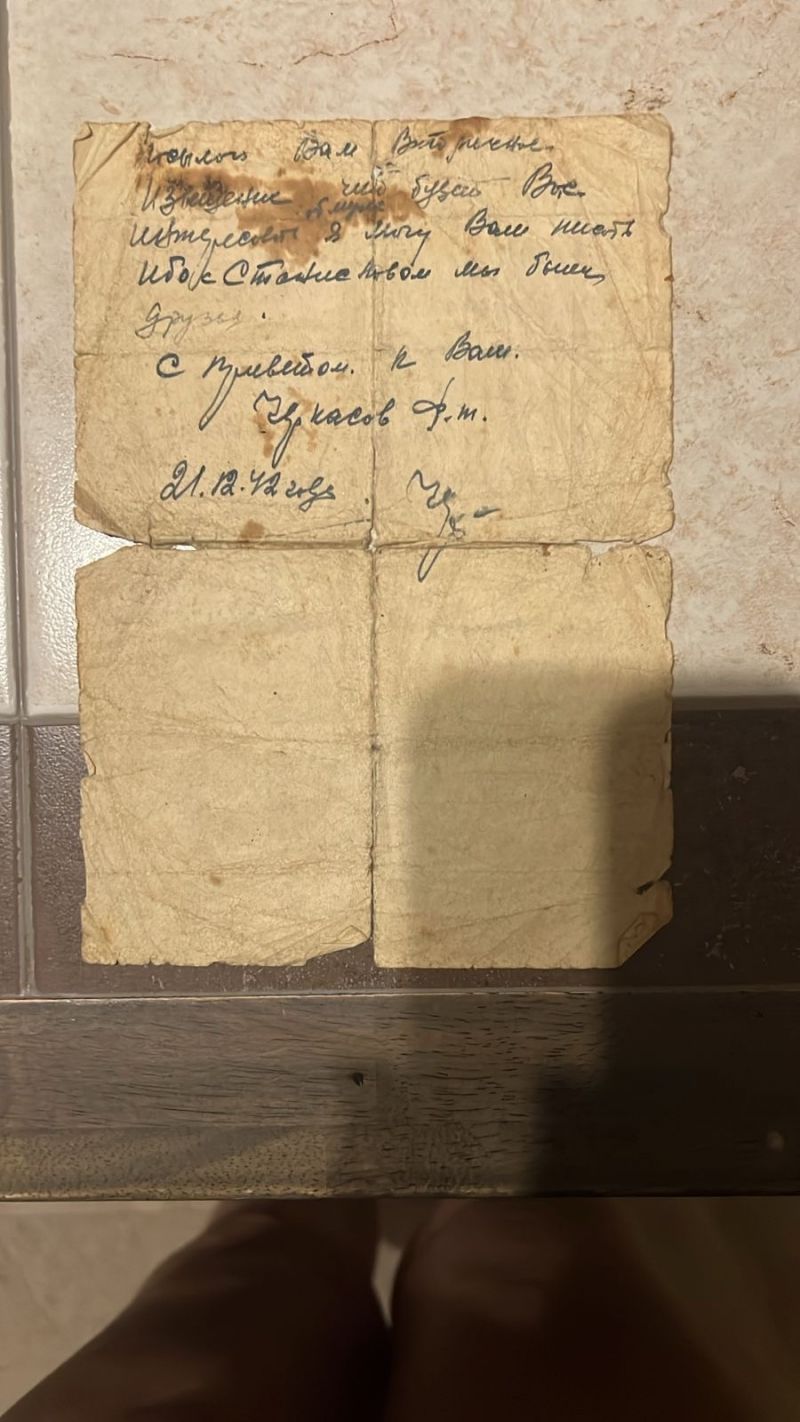 посылаю Вам Вторичное
Извещение что будет Вас
б мужа
Интересовать я могу Вам писать
Ибо с Станиславом мы были
Друзья.
С приветом к Вам.
Черкасов Ф.т.
21.12.42 года.